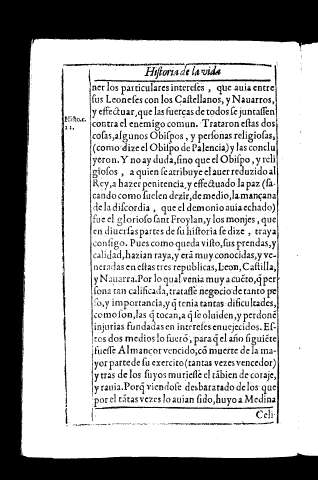 Historia de la vida
ner los particulares intereses, que auia entre
sus Leoneses con los Castellanos, y Nauarros,
y effectuar, que las fuerças de todos se juntassen
Histo.c.
11.
contra el enemigo comun. Trataron estas dos
cosas, algunos Obispos, y personas religiosas,
(como dize el Obispo de Palencia) y las conclu
yeron. Y no ay duda, sino que el Obispo, y reli
giosos, a quien se atribuye el auer reduzido al
Rey, a hazer penitencia, y effectuado la paz (sa-
cando como suelen dezir, de medio, la mançana
de la discordia, que el demonio auia echado)
fue el glorioso sant Froylan, y los monjes, que
en diuersas partes de su historia se dize, traya
consigo. Pues como queda visto, sus prendas, y
calidad, hazian raya, y erã muy conocidas, y ve-
neradas en estas tres republicas, Leon, Castilla,
y Nauarra. Por lo qual venia muy a cuẽto, q̃ per
sona tan calificada, tratasse negocio de tanto pe
so, y importancia, y q̃ tenia tantas dificultades,
como son, las q̃ tocan, a q̃ se oluiden, y perdonẽ
injurias fundadas en intereses enuejecidos. Es-
tos dos medios lo fuerõ, para q̃ el año siguiẽte
fuesse Almançor vencido, cõ muerte de la ma-
yor parte de su exercito (tantas vezes vencedor)
y tras de los suyos muriesse el tãbien de coraje,
y rauia. Porq̃ viendose desbaratado de los que
por el tãtas vezes lo auian sido, huyo a Medina
Celi